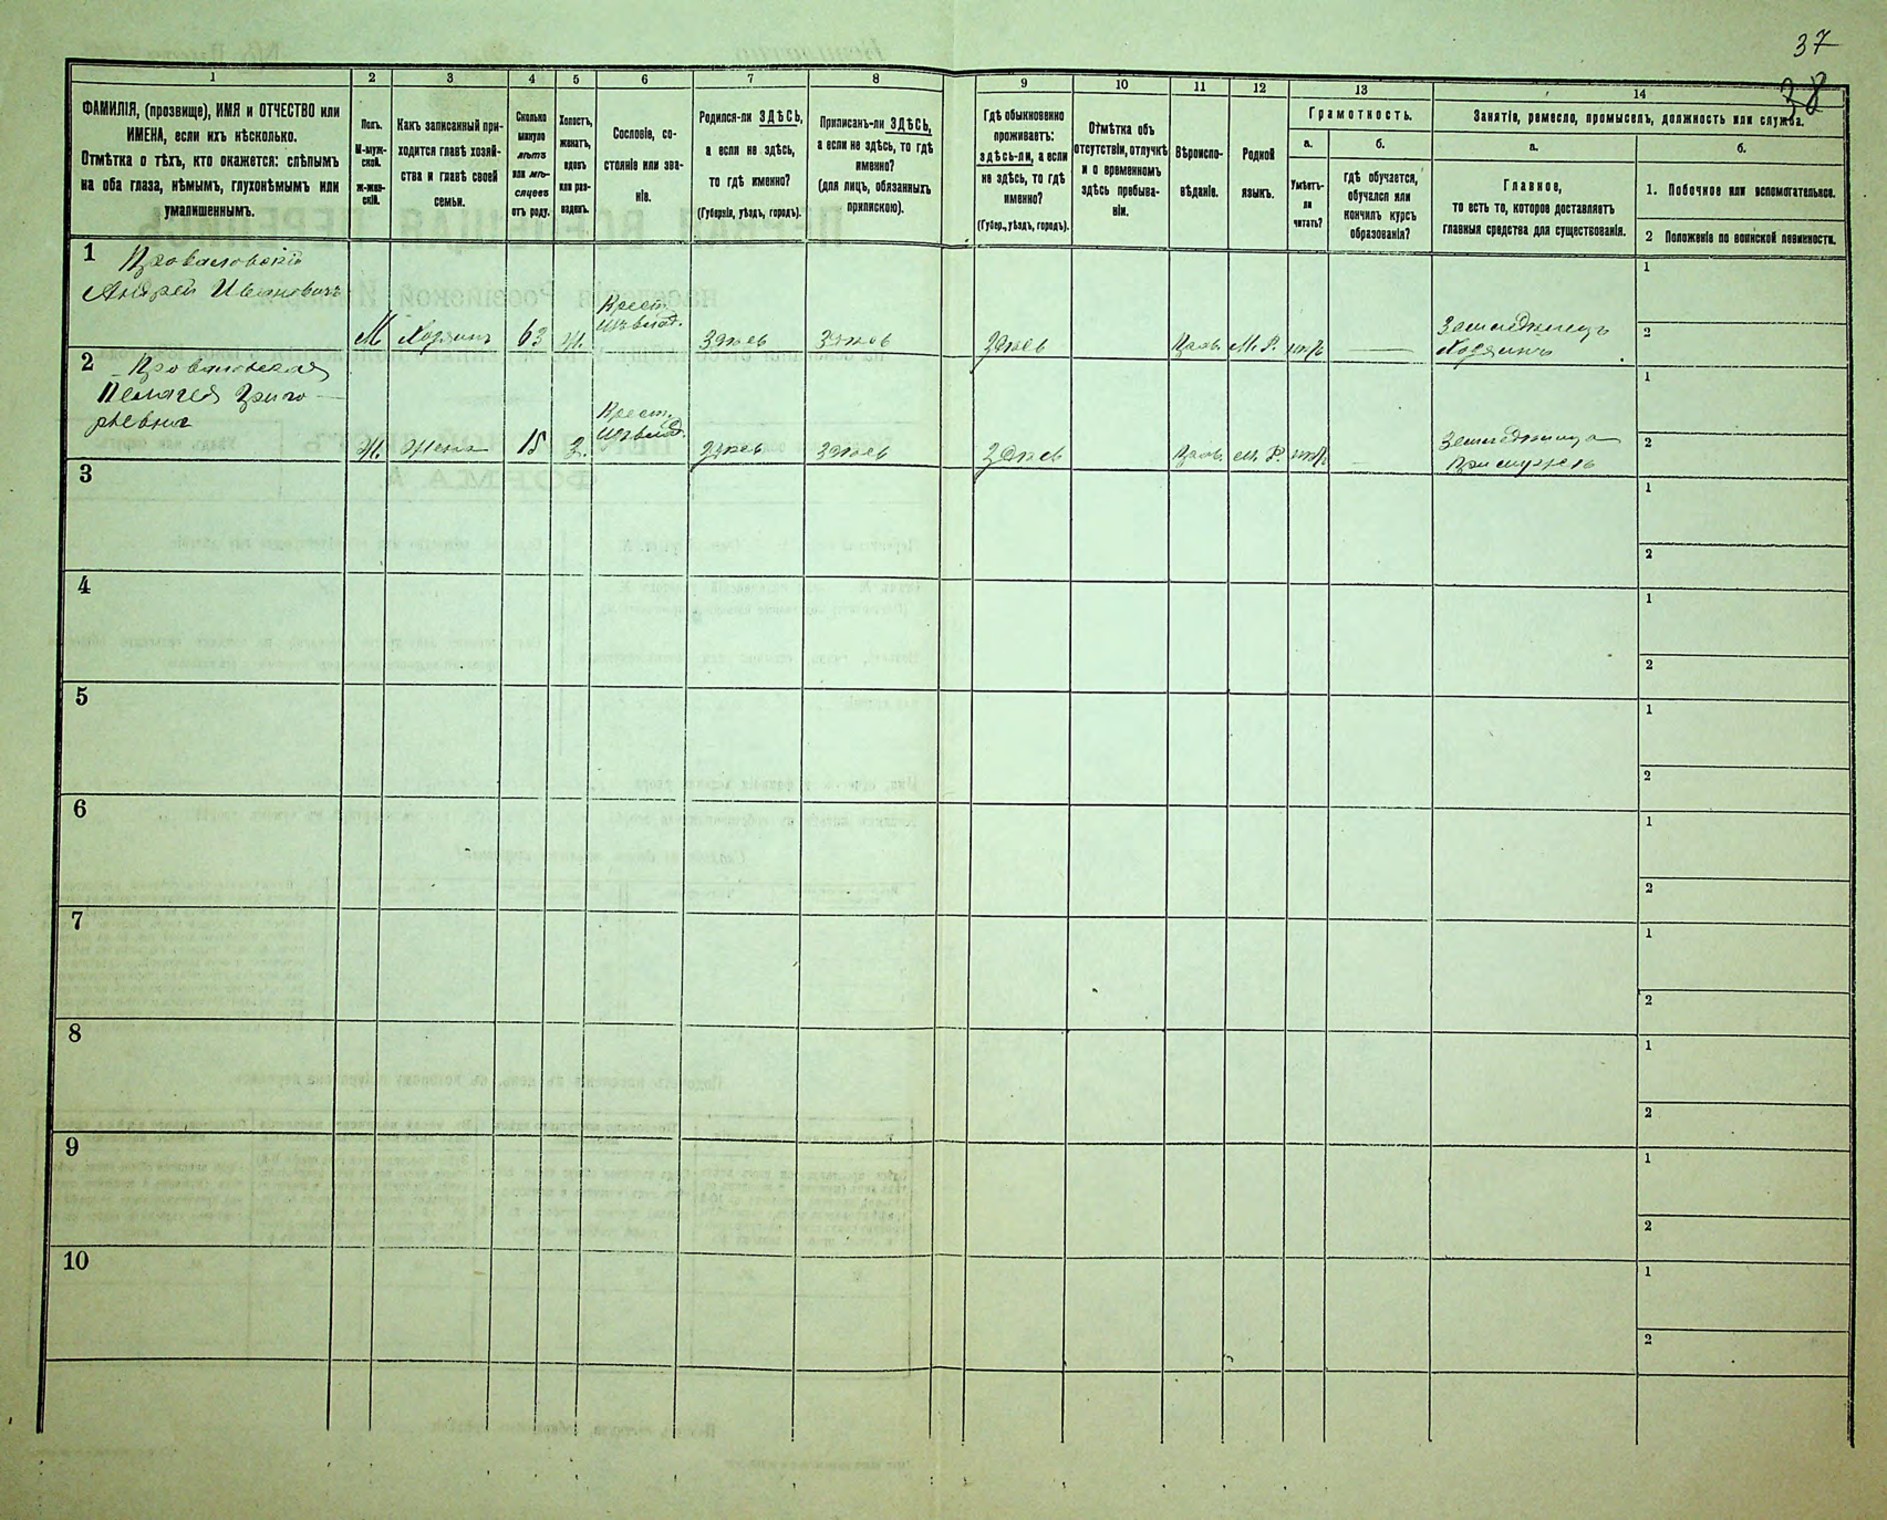 37
38
1
2
3
4
5
6
7
8
9
10
11
12
13
14
ФАМИЛІЯ, (прозвище), ИМЯ и ОТЧЕСТВО или
ИМЕНА, если ихъ нѣсколько.
Отмѣтка о тѣхъ, кто окажется: слѣпымъ
на оба глаза, нѣмымъ, глухонѣмымъ или
умалишеннымъ.
Полъ.
М-муж-
ской.
ж-жен-
скій.
Какъ записанный при-
ходится главѣ хозяй-
ства и главѣ своей
семьи.
Сколько
минуло
лѣтъ
или мѣ-
сяцевъ
отъ роду.
Холостъ,
женатъ,
вдовъ
или раз-
веденъ.
Сословіе, со-
стояніе или зва-
ніе.
Родился-ли ЗДѢСЬ,
а если не здѣсь,
то гдѣ именно?
(Губернія, уѣздъ, городъ).
Приписанъ-ли ЗДѢСЬ,
а если не здѣсь, то гдѣ
именно?
(для лицъ, обязанныхъ
припискою).
Гдѣ обыкновенно
проживаетъ:
здѣсь-ли, а если
не здѣсь, то гдѣ
именно?
(Губер., уѣздъ, городъ).
Отмѣтка объ
отсутствіи, отлучкѣ
и о временномъ
здѣсь пребыва-
ніи.
Вѣроиспо-
вѣданіе.
Родной
языкъ.
Грамотность.
а.
Умѣетъ-
ли
читать?
б.
гдѣ обучается,
обучался или
кончилъ курсъ
образованія?
Занятіе, ремесло, промыселъ, должность или служба.
а.
Главное,
то есть то, которое доставляетъ
главныя средства для существованія.
б.
1. Побочное или вспомогательное.
2 Положеніе по воинской повинности.
1
Андрей Ивановичъ
М Хозяинъ 63 Ж.
Крест.
Здѣсь Здѣсь Здѣсь
М. Р. нѣтъ —
Хозяинъ
1
2
2
Пелагея Григо-
рьевна
Ж. Жена З.
Крест.
Здѣсь Здѣсь Здѣсь
М. Р. нѣтъ —
1
2
3
1
2
4
1
2
5
1
2
6
1
2
7
1
2
8
1
2
9
1
2
10
1
2